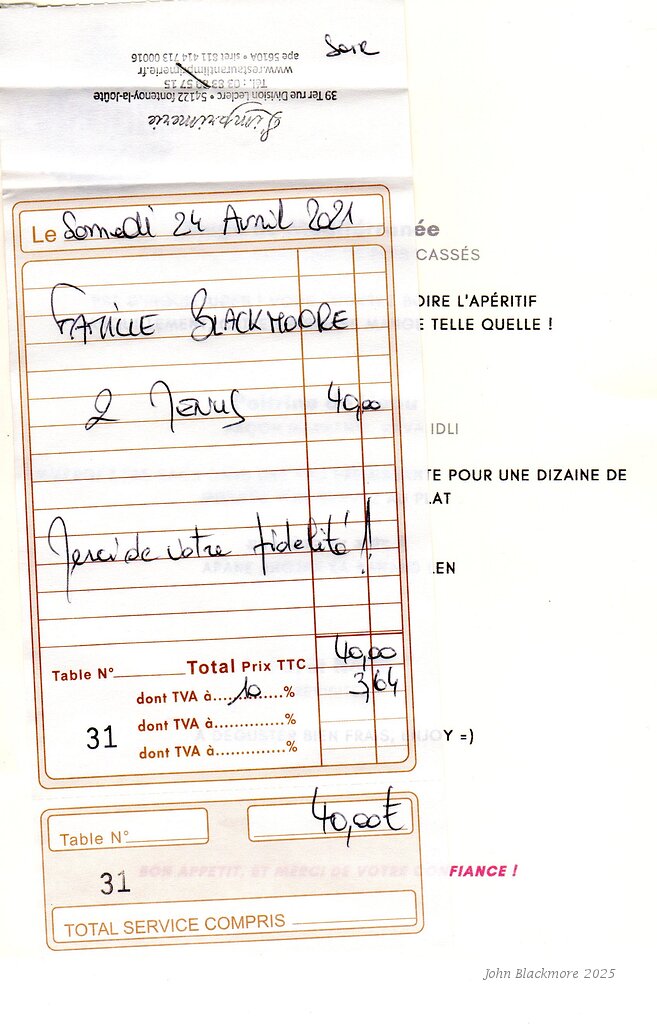 Soir
ape 5610A • siret 811 414 713 00016
www.restaurantlimprimerie.fr
39 Ter rue Division Leclerc • 54122 fontenoy-la-Joûte
L'imprimerie
Le Samedi 24 Avril 2021
FAMILLE BLACKMOORE
2 MENUS 40,00
Merci de votre fidélité !
Table N° Total Prix TTC 40,00
dont TVA à....10....% 3,64
dont TVA à..............%
31
dont TVA à..............%
40,00€
Table N°
31
TOTAL SERVICE COMPRIS
ée
CASSÉS
OIRE L'APÉRITIF
E TELLE QUELLE !
IDLI
TE POUR UNE DIZAINE DE
LAT
LEN
À DÉGUSTER BIEN FRAIS, ENJOY =)
BON APPETIT, ET MERCI DE VOTRE CONFIANCE !
John Blackmore 2025